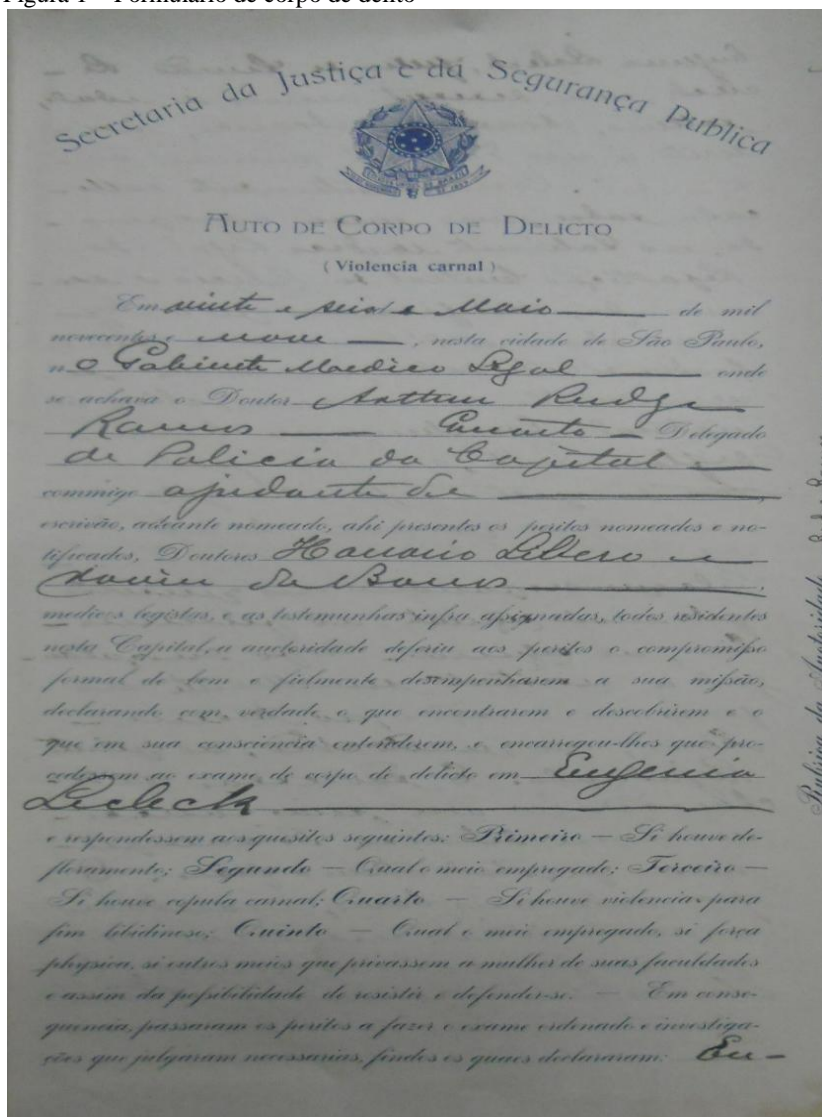 Figura 1 – Formulário de corpo de delito
Secretaria da Justiça e da Segurança Publica
AUTO DE CORPO DE DELICTO
(Violencia carnal)
Em vinte e seis de Maio — de mil
novecentos e nove —, nesta cidade de São Paulo,
n o Gabinete Medico Legal — onde
se achava o Doutor Arthur Rudge
Ramos — Quarto — Delegado
de Policia da Capital —
commigo ajudante de —
escrivão, adeante nomeado, ahi presentes os peritos nomeados e no-
tificados, Doutores Honorio Libero e
Xavier de Barros —,
medicos legistas, e as testemunhas infra assignadas, todos residentes
nesta Capital, a auctoridade deferiu aos peritos o compromisso
formal de bem e fielmente desempenharem a sua missão,
declarando com verdade o que encontrarem e descobrirem e o
que em sua consciencia entenderem, e encarregou-lhes que pro-
cedessem ao exame de corpo de delicto em Eugenia
—
e respondessem aos quesitos seguintes: Primeiro — Si houve de-
floramento; Segundo — Qual o meio empregado; Terceiro —
Si houve copula carnal; Quarto — Si houve violencias para
fim libidinoso; Quinto — Qual o meio empregado, si força
physica, si outros meios que privassem a mulher de suas faculdades
e assim da possibilidade de resistir e defender-se. — Em conse-
quencia, passaram os peritos a fazer o exame ordenado e investiga-
ções que julgaram necessarias, findos os quaes declararam: Eu-
Rubrica da Auctoridade